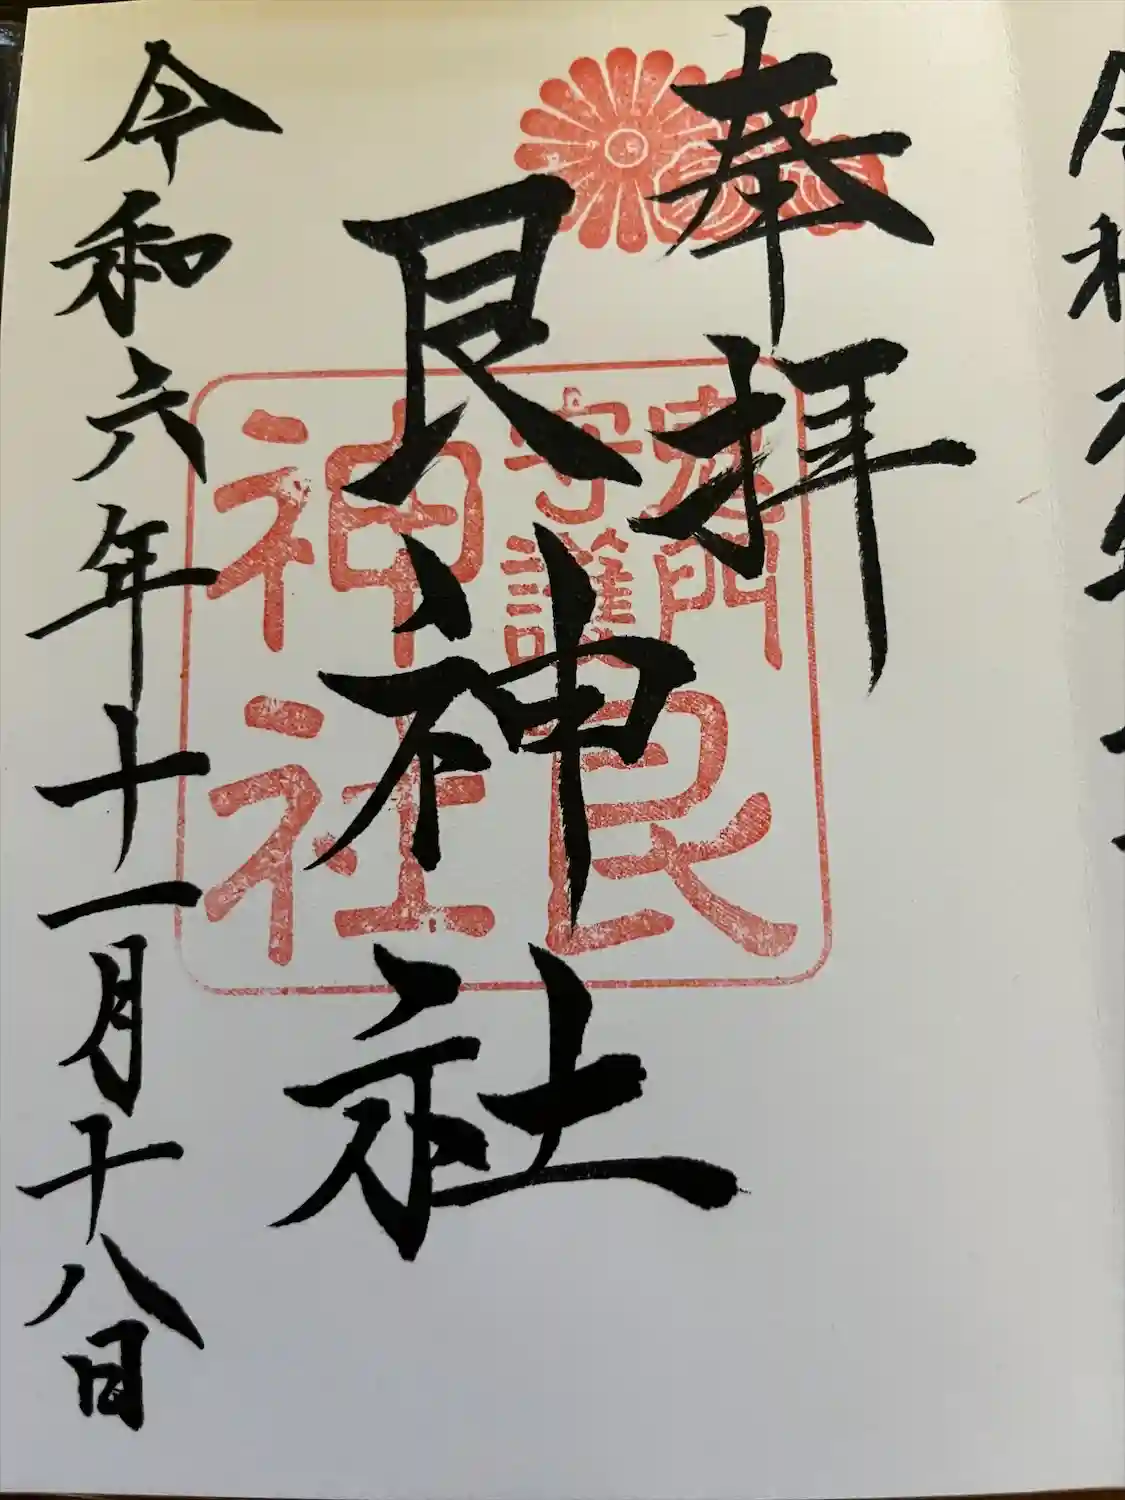 奉拝
艮神社
令和六年十一月十八日
鬼門
守護
艮
神社
令和六年十